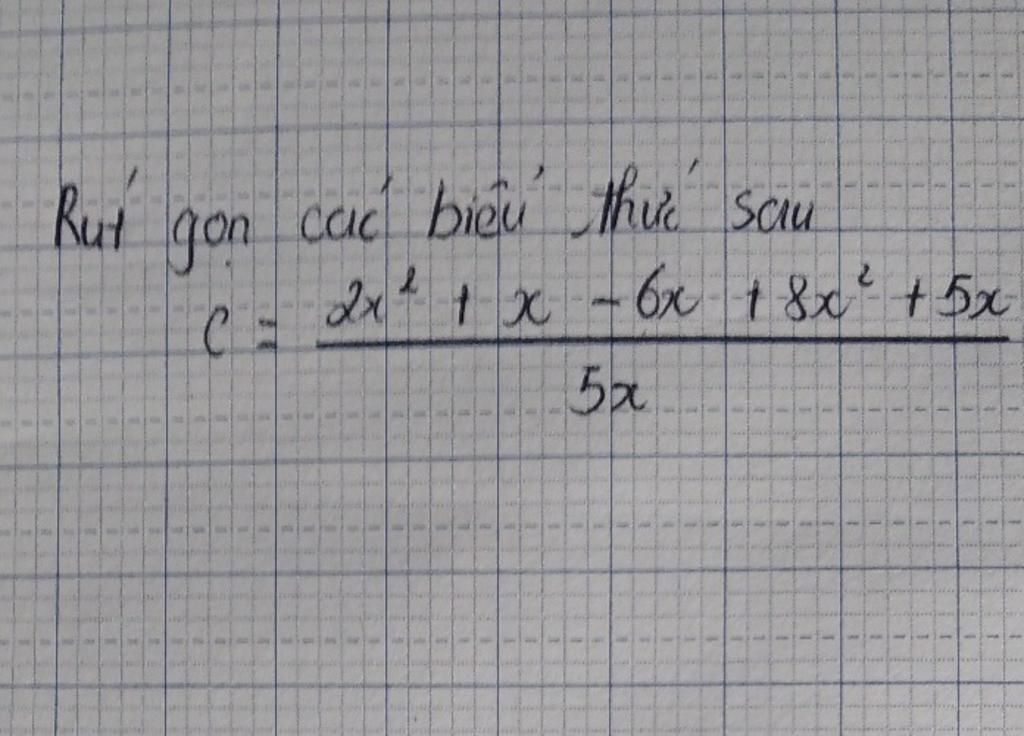 Rút gọn các biểu thức sau
C = \frac{2x² + x - 6x + 8x² + 5x}{5x}